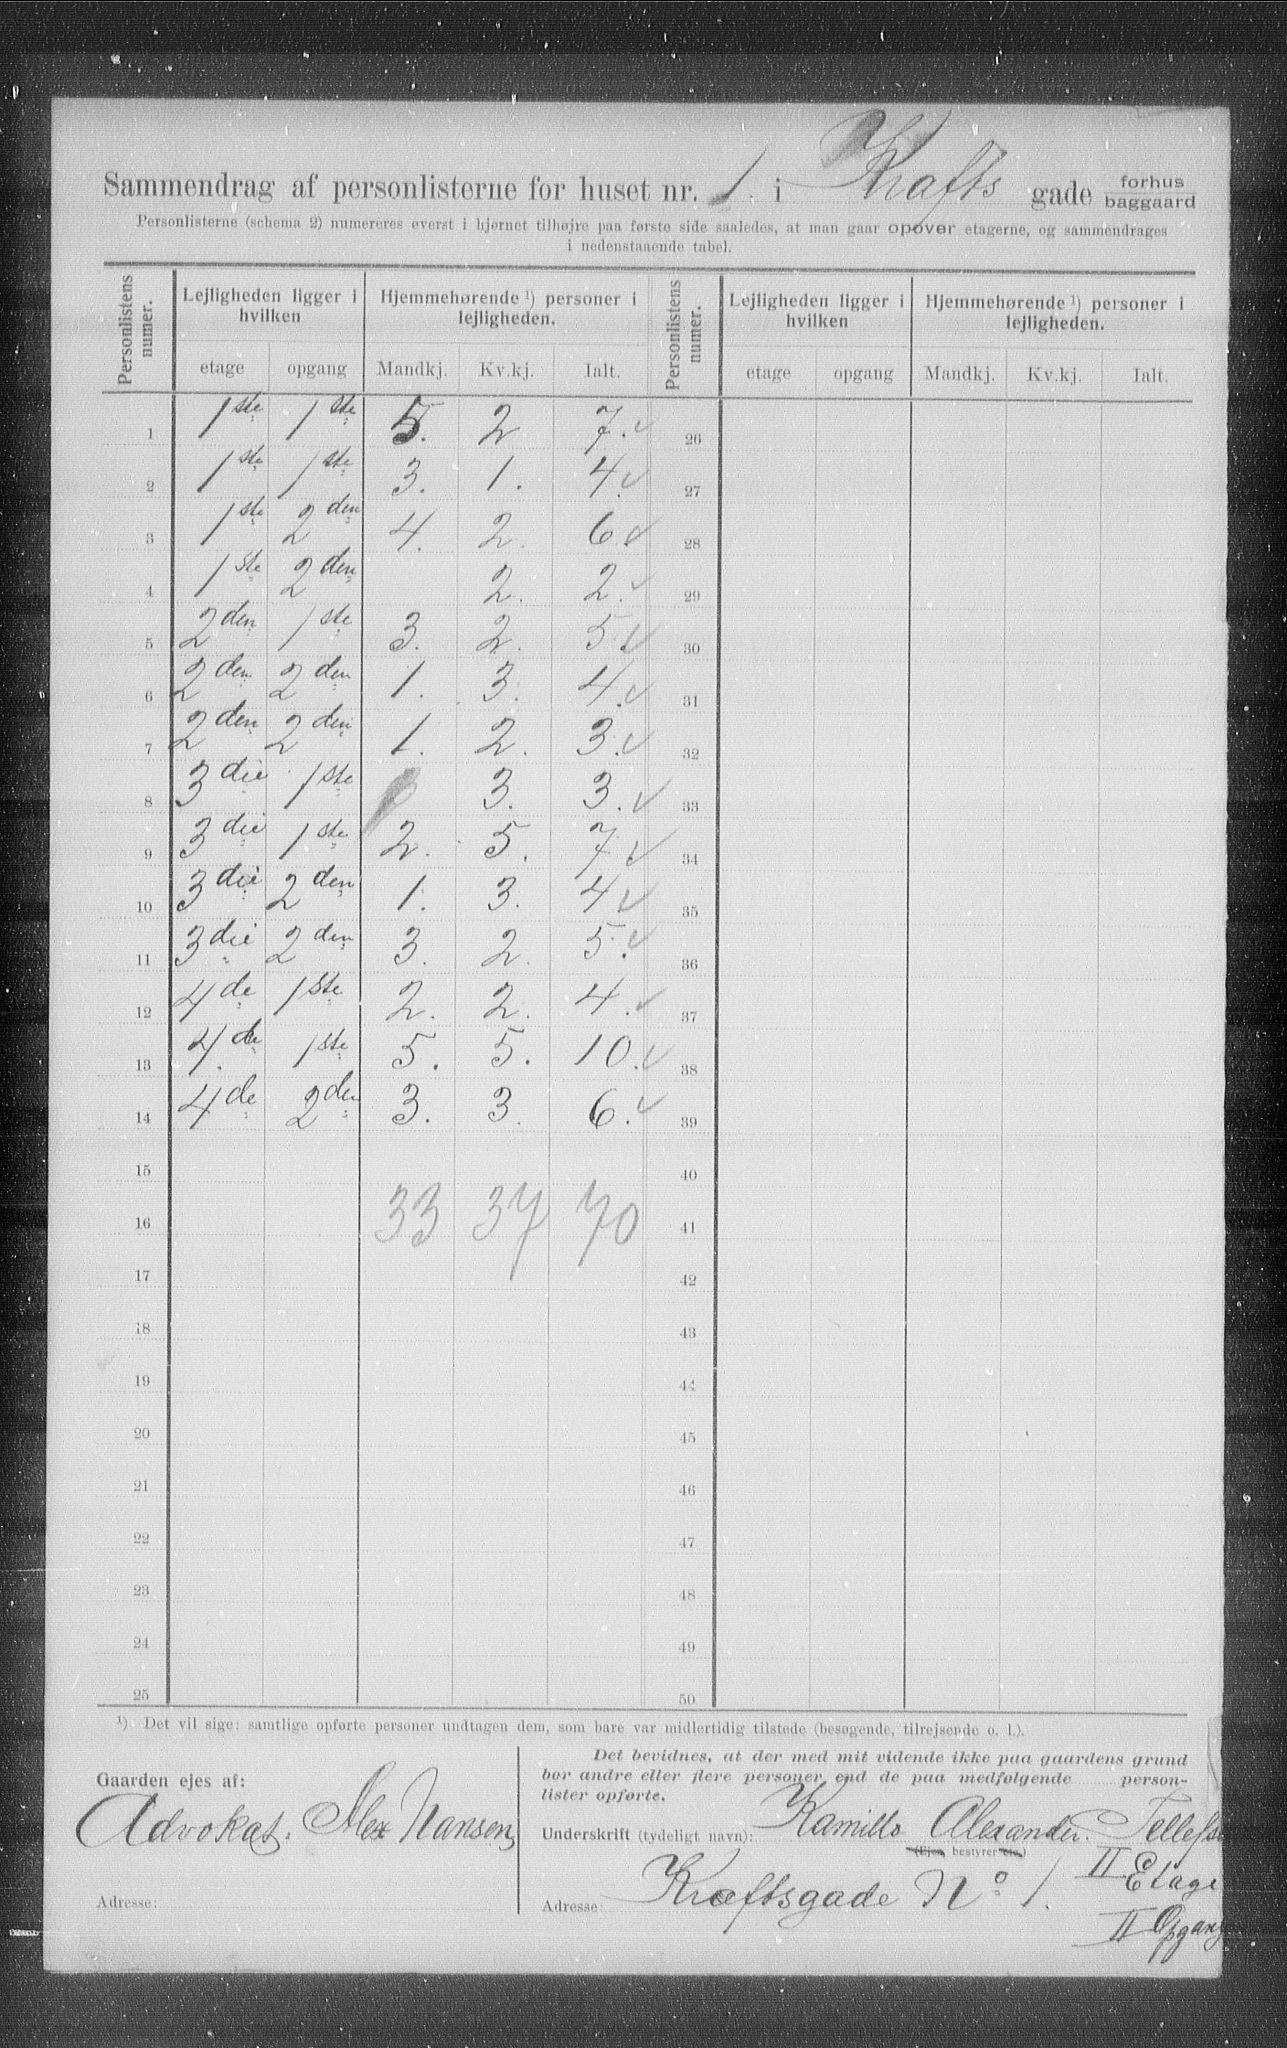 Sammendrag af personlisterne for huset nr. 1. i Krafts gade forhus baggaard
Personlisterne (schema 2) numereres øverst i hjørnet tilhøjre paa første side saaledes, at man gaar opover etagerne, og sammendrages
i nedenstaaende tabel.
Personlistens numer. Lejligheden ligger i hvilken Hjemmehørende ¹) personer i lejligheden. Personlistens numer. Lejligheden ligger i hvilken Hjemmehørende ¹) personer i lejligheden.
etage opgang Mandkj. Kv.kj. Ialt. etage opgang Mandkj. Kv.kj. Ialt.
1 1ste 1ste 5. 2 7. ✓ 26
2 1ste 1ste 3. 1. 4. ✓ 27
3 1ste 2den 4. 2. 6 ✓ 28
4 1ste 2den 2. 2. ✓ 29
5 2den 1ste 3. 2. 5. ✓ 30
6 2den 2den 1. 3. 4. ✓ 31
7 2den 2den 1. 2. 3. ✓ 32
8 3die 1ste 3. 3. ✓ 33
9 3die 1ste 2. 5. 7. ✓ 34
10 3die 2den 1. 3. 4 ✓ 35
11 3die 2den 3. 2. 5. ✓ 36
12 4de 1ste 2. 2. 4. ✓ 37
13 4.de 1ste 5. 5. 10. ✓ 38
14 4de 2den 3. 3. 6. ✓ 39
15 40
16 33 37 70 41
17 42
18 43
19 44
20 45
21 46
22 47
23 48
24 49
25 50
¹). Det vil sige: samtlige opførte personer undtagen dem, som bare var midlertidig tilstede (besøgende, tilrejsende o. l.).
Gaarden ejes af:
Advokat. Alex Nansen
Adresse:
Det bevidnes, at der med mit vidende ikke paa gaardens grund
bor andre eller flere personer end de paa medfølgende person-
lister opførte.
Underskrift (tydeligt navn): Kamillo Alexander. Tellefse
(Ejer, bestyrer etc.)
II Etage
Adresse: Kraftsgade No 1.
II Opgang